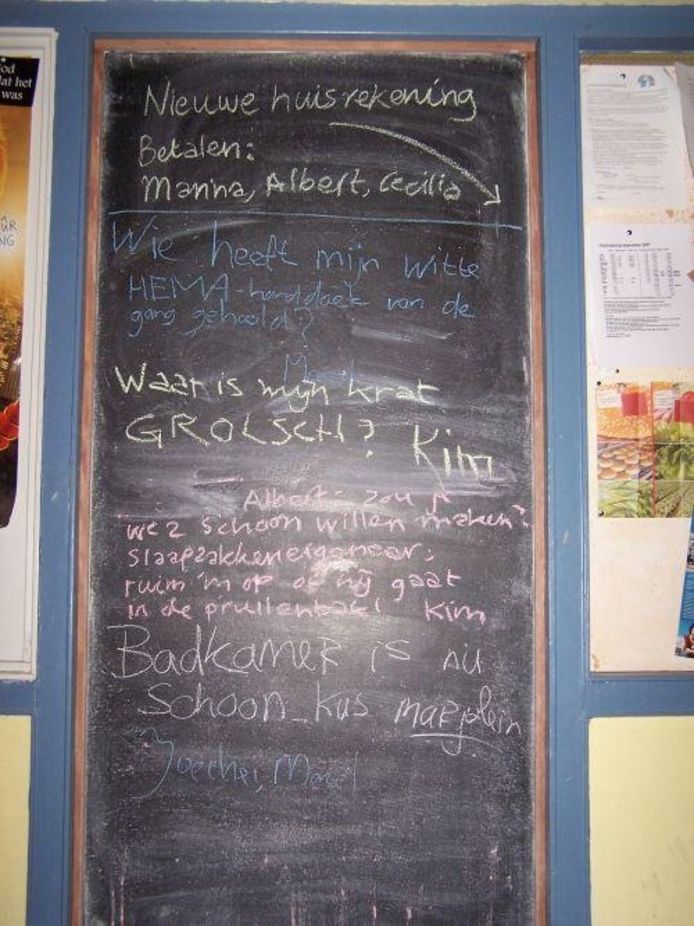 Nieuwe huisrekening
Betalen:
Marina, Albert, Cecilia
Wie heeft mijn witte
HEMA-handdoek van de
gang gehaald?
Waar is mijn krat
GROLSCH? Kim
Albert: zou je
wc 2 schoon willen maken?
slaapzakkeneigenaar:
ruim 'm op of hij gaat
in de prullenbak! Kim
BadkameR is nu
schoon_kus marjolein
od
at het
was
ÛR
NG